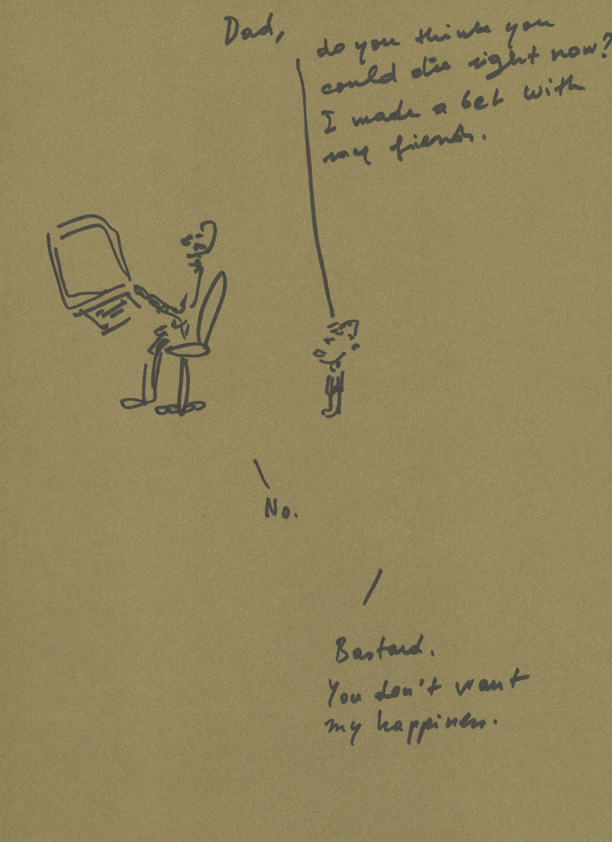 Dad,
do you think you
could die right now?
I made a bet with
my friends.
No.
Bastard.
You don't want
my happiness.